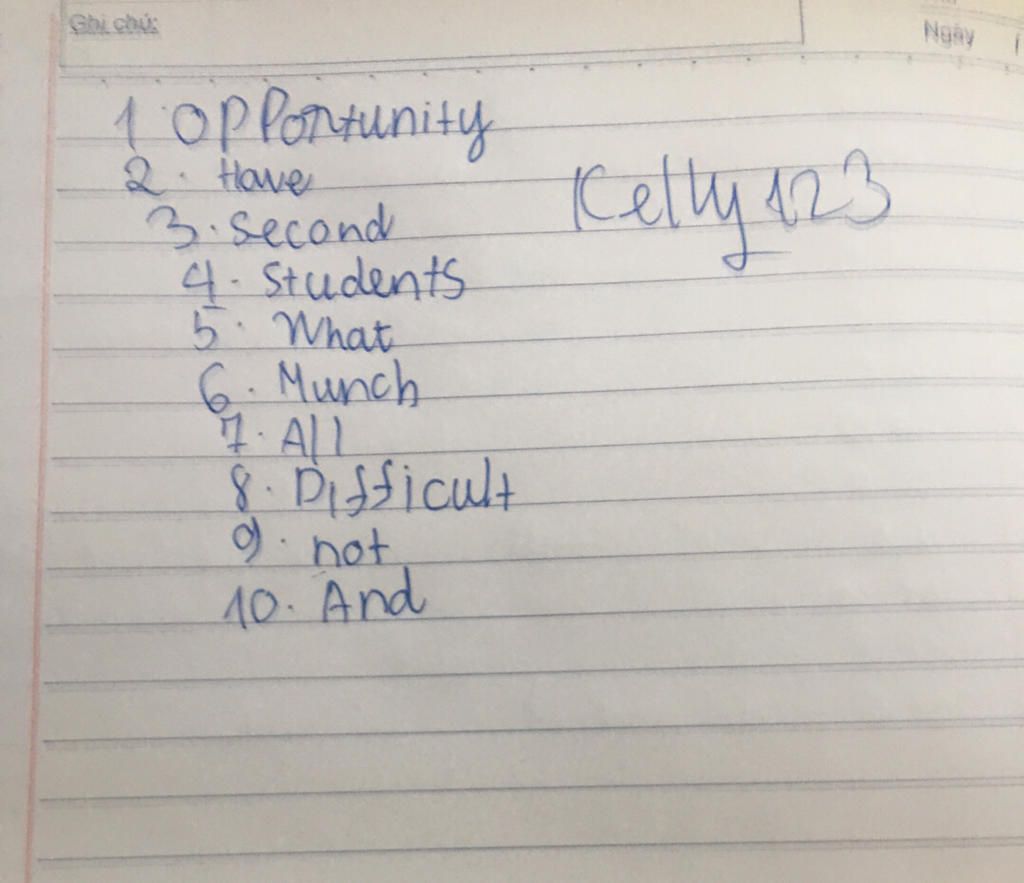 Ghi chú:
Ngày
1 Opportunity
2. Have
Kelly 123
3. Second
4. Students
5. What
6. Munch
7. All
8. Difficult
9. not
10. And